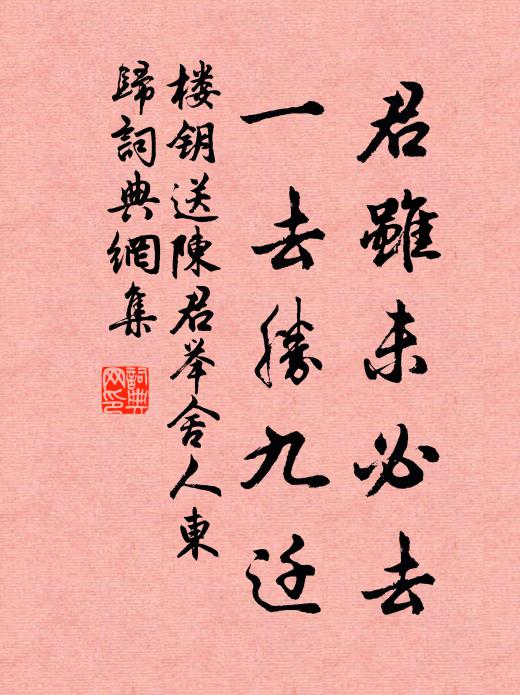 君雖未必去
一去勝九迁
楼钥送陳君举舍人東
歸詞典網集
詞典网印